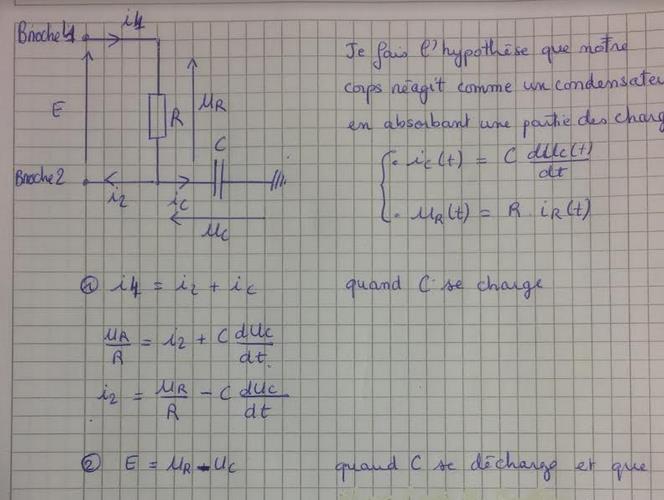 Broche 4 i4
E
R
UR
C
Broche 2
i2 ic
Uc
Je fais l'hypothèse que notre
corps réagit comme un condensate
en absorbant une partie des charg
• ic(t) = C dUc(t)/dt
• UR(t) = R iR(t)
① i4 = i2 + ic quand C se charge
UR/R = i2 + C dUc/dt
i2 = UR/R - C dUc/dt
② E = UR - Uc quand C se décharge et que